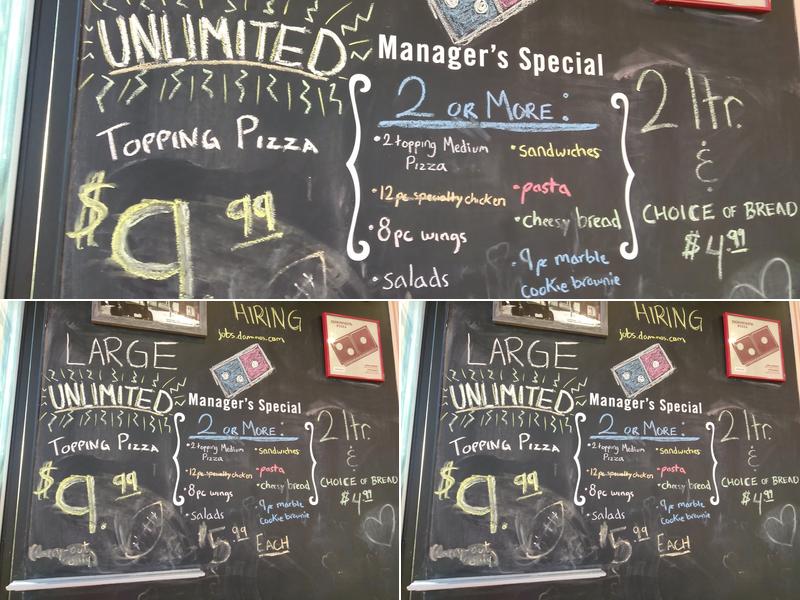 UNLIMITED
TOPPING PIZZA
$9.99
Manager's Special
2 OR MORE:
• 2 topping Medium
Pizza
• 12 pc specialty chicken
• 8pc wings
• Salads
• sandwiches
• pasta
• cheesy bread
• 9 pc marble
cookie brownie
2 ltr.
&
CHOICE OF BREAD
$4.99
HIRING
jobs.dominos.com
LARGE
UNLIMITED
TOPPING PIZZA
$9.99
Carry-out
only
Manager's Special
2 OR MORE:
• 2 topping Medium
Pizza
• 12 pc specialty chicken
• 8pc wings
• Salads
• sandwiches
• pasta
• cheesy bread
• 9 pc marble
cookie brownie
$5.99
EACH
2 ltr.
&
CHOICE OF BREAD
$4.99
HIRING
jobs.dominos.com
LARGE
UNLIMITED
TOPPING PIZZA
$9.99
Carry-out
only
Manager's Special
2 OR MORE:
• 2 topping Medium
Pizza
• 12 pc specialty chicken
• 8pc wings
• Salads
• sandwiches
• pasta
• cheesy bread
• 9 pc marble
cookie brownie
$5.99
EACH
2 ltr.
&
CHOICE OF BREAD
$4.99